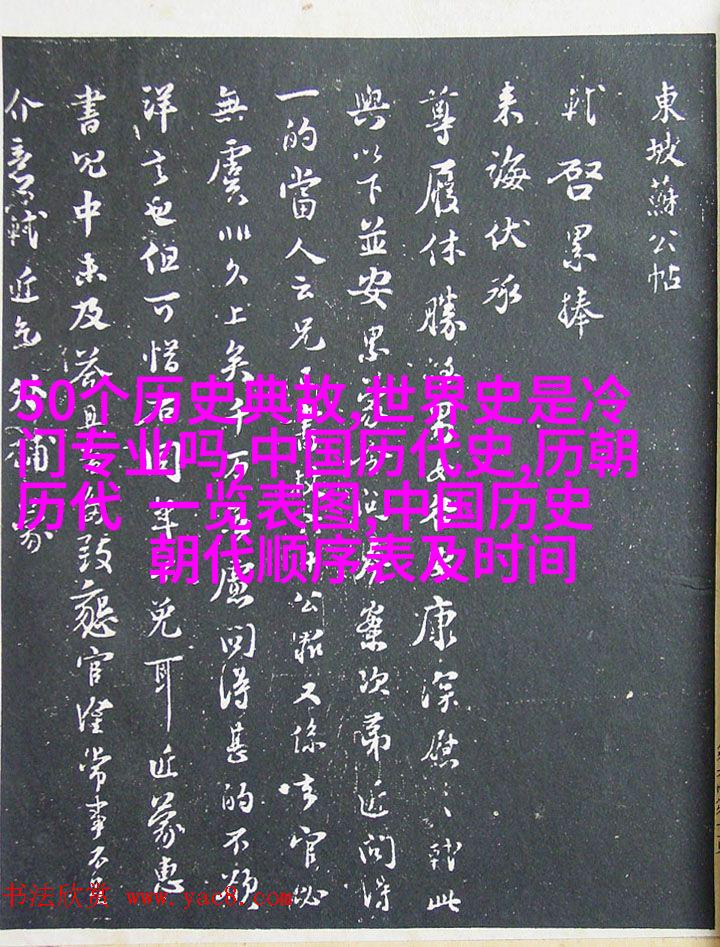 東坡蘇公帖
軾啓累捧
来誨伏承
尊履休勝 康深慰
與以下並安 次第近問得
一的當人云兄 公罪又係去官必
無虞 久上矣千 慮回得甚的不煩
詳言也但可惜 免耳近蒙惠
書 中未及荅 致懇官滿常事不
介意軾近乞
50个历史典故,世界史是冷
门专业吗,中国历代史,历朝
历代 一览表图,中国历史
朝代顺序表及时间
书法欣赏 www.yac8.com